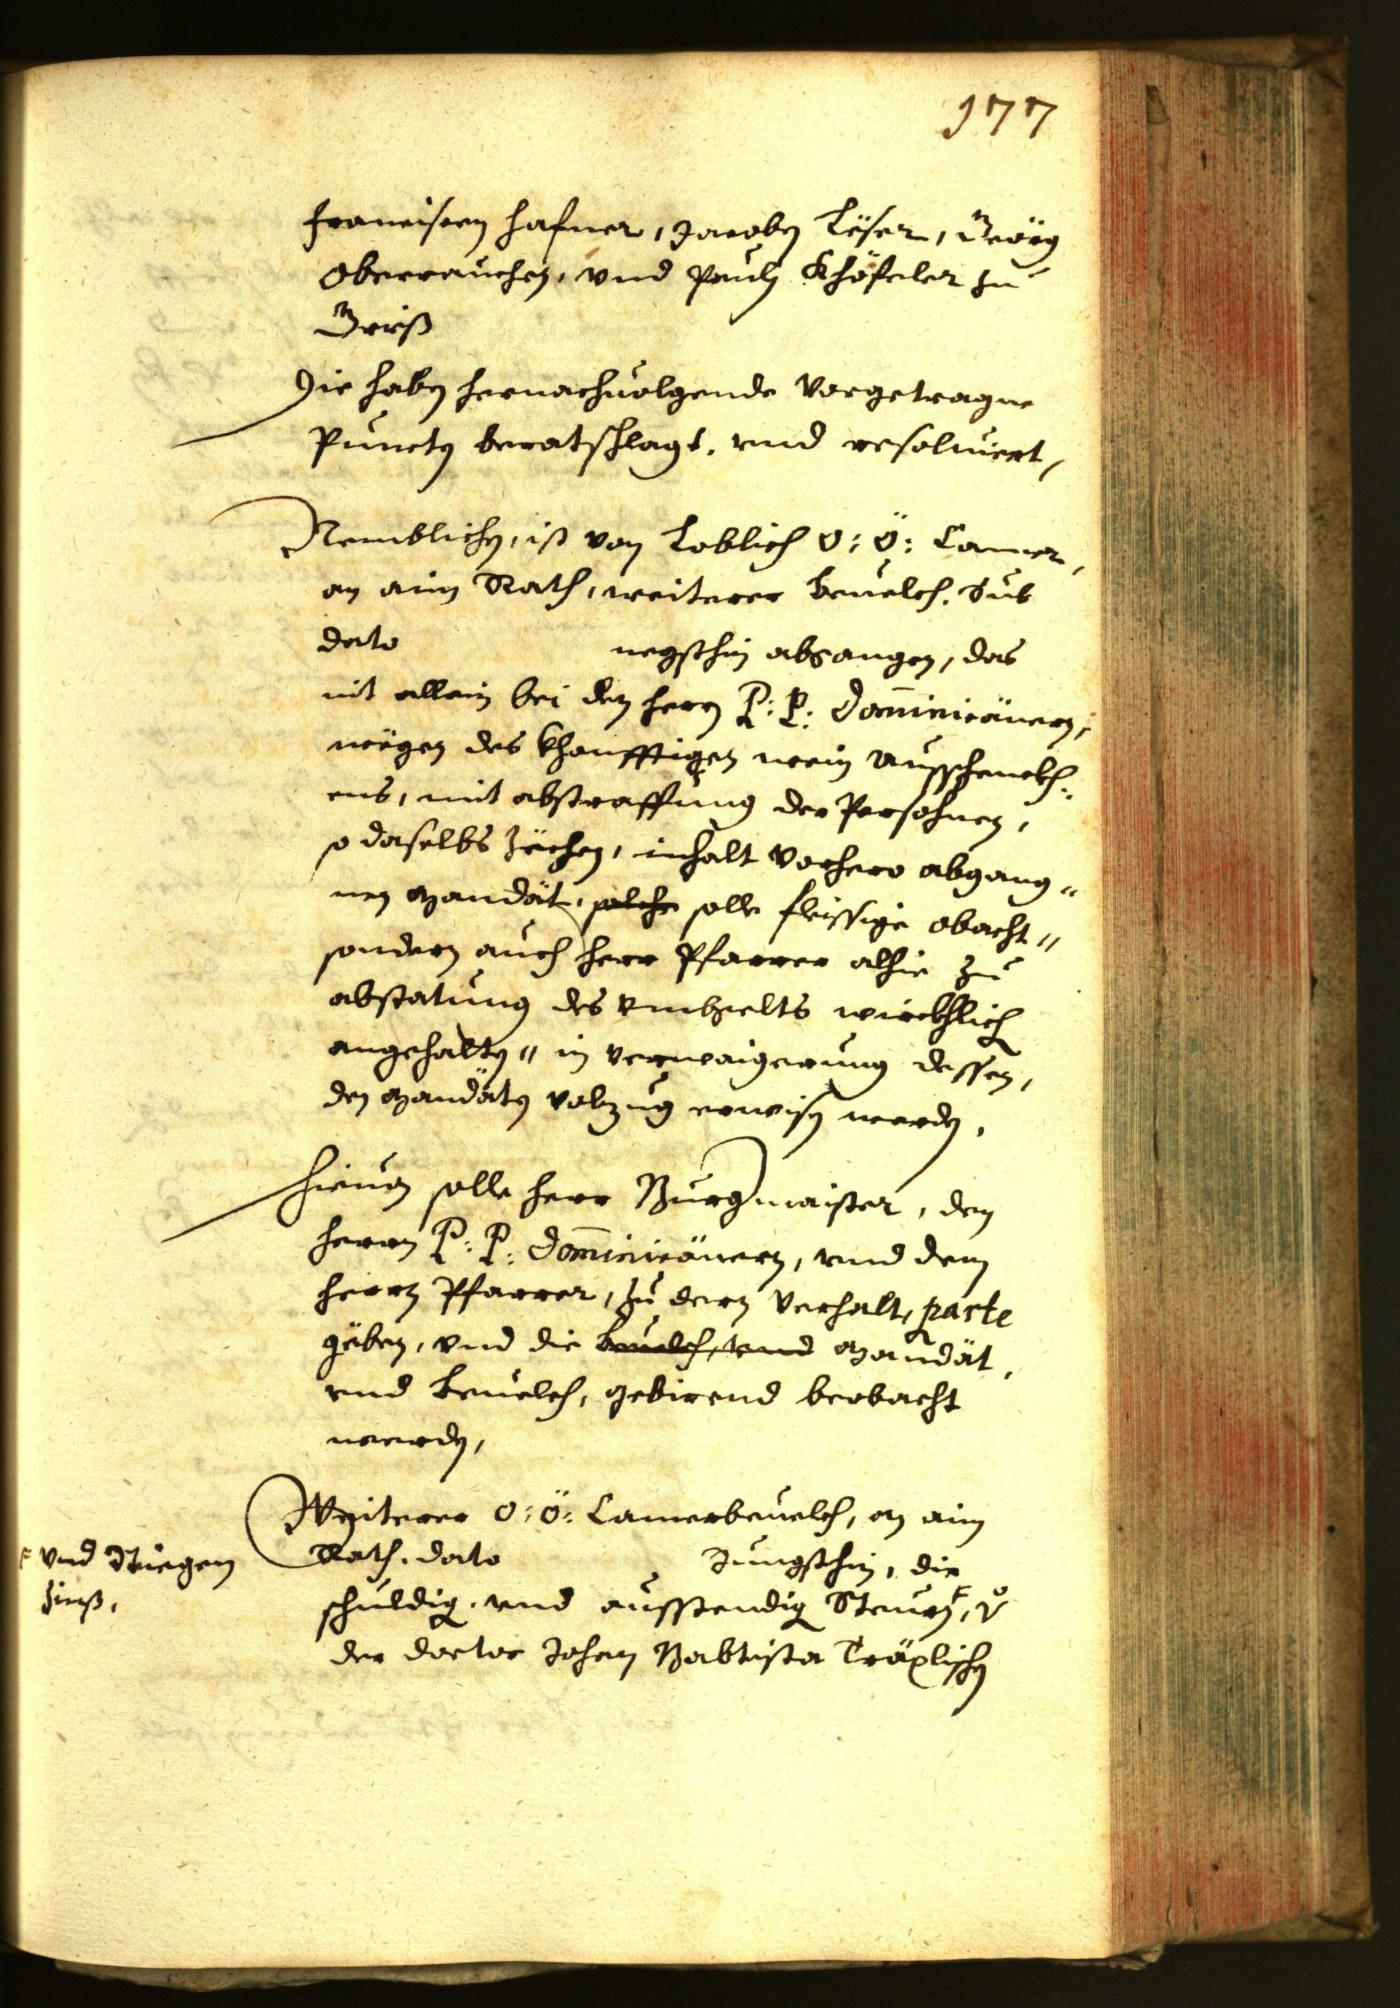 177
Francisen Hafner, Jacoben Leser, Geörg
Oberrauchen, vnd Pauln Khöfeler zu
Grieß
Die haben hernachuolgende vorgetragne
Puncten beratschlagt, vnd resoluiert,
Nemblichen, ist von Loblich O: Ö: Camer,
an ain Rath, weiterer beuelch, sub
dato negsthin abgangen, das
nit allain bei den herrn P: P: Dominicänern,
wegen des khonfftigen wein ausschenckh:
ens, mit abstraffung der Persohnen,
so daselbs zechen, inhalt vorhero abgang"
nen Mandät, solche solle fleissige obacht"
sondern auch herr Pfarrer alhie zu
abstatung des vmbgelts würckhlich
angehalten" in verwaigerung dessen,
den Mandäten volzug erwisen werden,
Hieuon solle herr Burgmaister, den
herrn P: P: Dominicänern, vnd dem
herrn Pfarrer, zu dern verhalt, parte
geben, vnd die beuelch, vnd Mandät,
vnd beuelch, gebirend beobacht
werden,
Weiterer O: Ö: Camerbeuelch, an ain
Rath, dato Jungsthin, die
schuldig, vnd ausstendig Steurn,
der doctor Johan Babtista Träxlischen
vnd Wiegen
zinß,